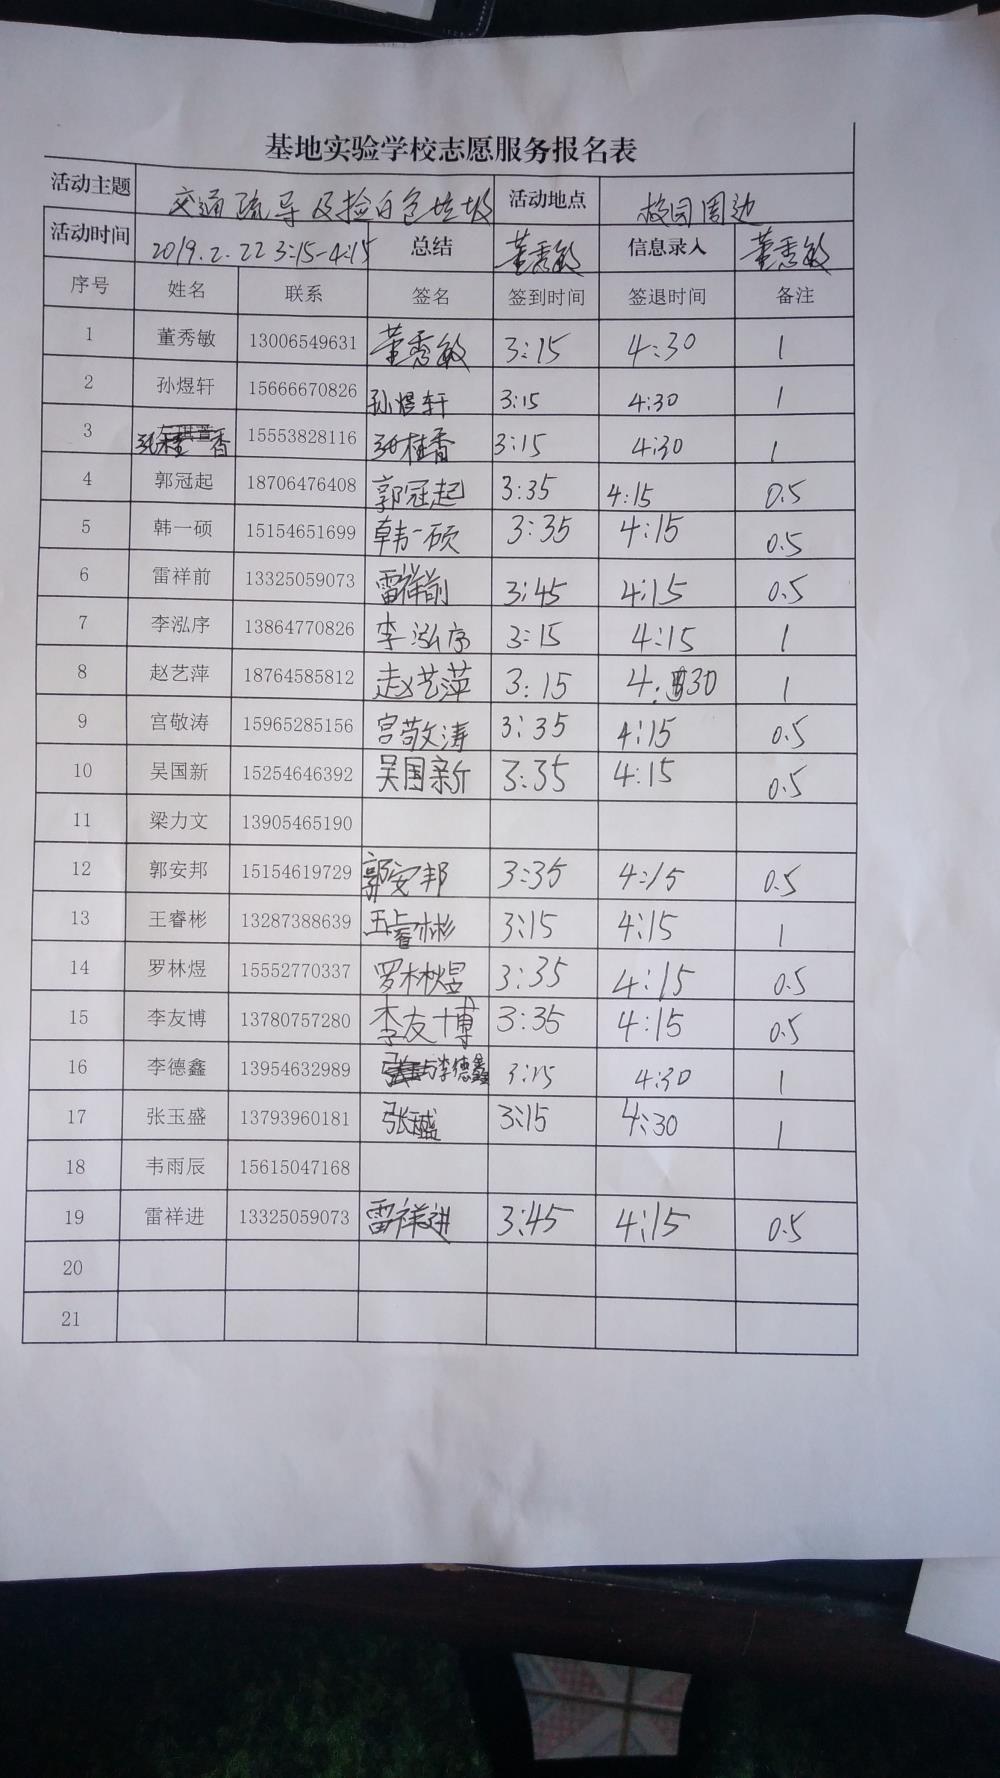 基地实验学校志愿服务报名表
活动主题 交通疏导及捡白色垃圾 活动地点 校园周边
活动时间 2019.2.22 3:15-4:15 总结 董秀敏 信息录入 董秀敏
序号 姓名 联系 签名 签到时间 签退时间 备注
1 董秀敏 13006549631 董秀敏 3:15 4:30 1
2 孙煜轩 15666670826 孙煜轩 3:15 4:30 1
3 张桂香 15553828116 张桂香 3:15 4:30 1
4 郭冠起 18706476408 郭冠起 3:35 4:15 0.5
5 韩一硕 15154651699 韩一硕 3:35 4:15 0.5
6 雷祥前 13325059073 雷祥前 3:45 4:15 0.5
7 李泓序 13864770826 李泓序 3:15 4:15 1
8 赵艺萍 18764585812 赵艺萍 3:15 4:30 1
9 宫敬涛 15965285156 宫敬涛 3:35 4:15 0.5
10 吴国新 15254646392 吴国新 3:35 4:15 0.5
11 梁力文 13905465190
12 郭安邦 15154619729 郭安邦 3:35 4:15 0.5
13 王睿彬 13287388639 王睿彬 3:15 4:15 1
14 罗林煜 15552770337 罗林煜 3:35 4:15 0.5
15 李友博 13780757280 李友博 3:35 4:15 0.5
16 李德鑫 13954632989 李德鑫 3:15 4:30 1
17 张玉盛 13793960181 张玉盛 3:15 4:30 1
18 韦雨辰 15615047168
19 雷祥进 13325059073 雷祥进 3:45 4:15 0.5
20
21